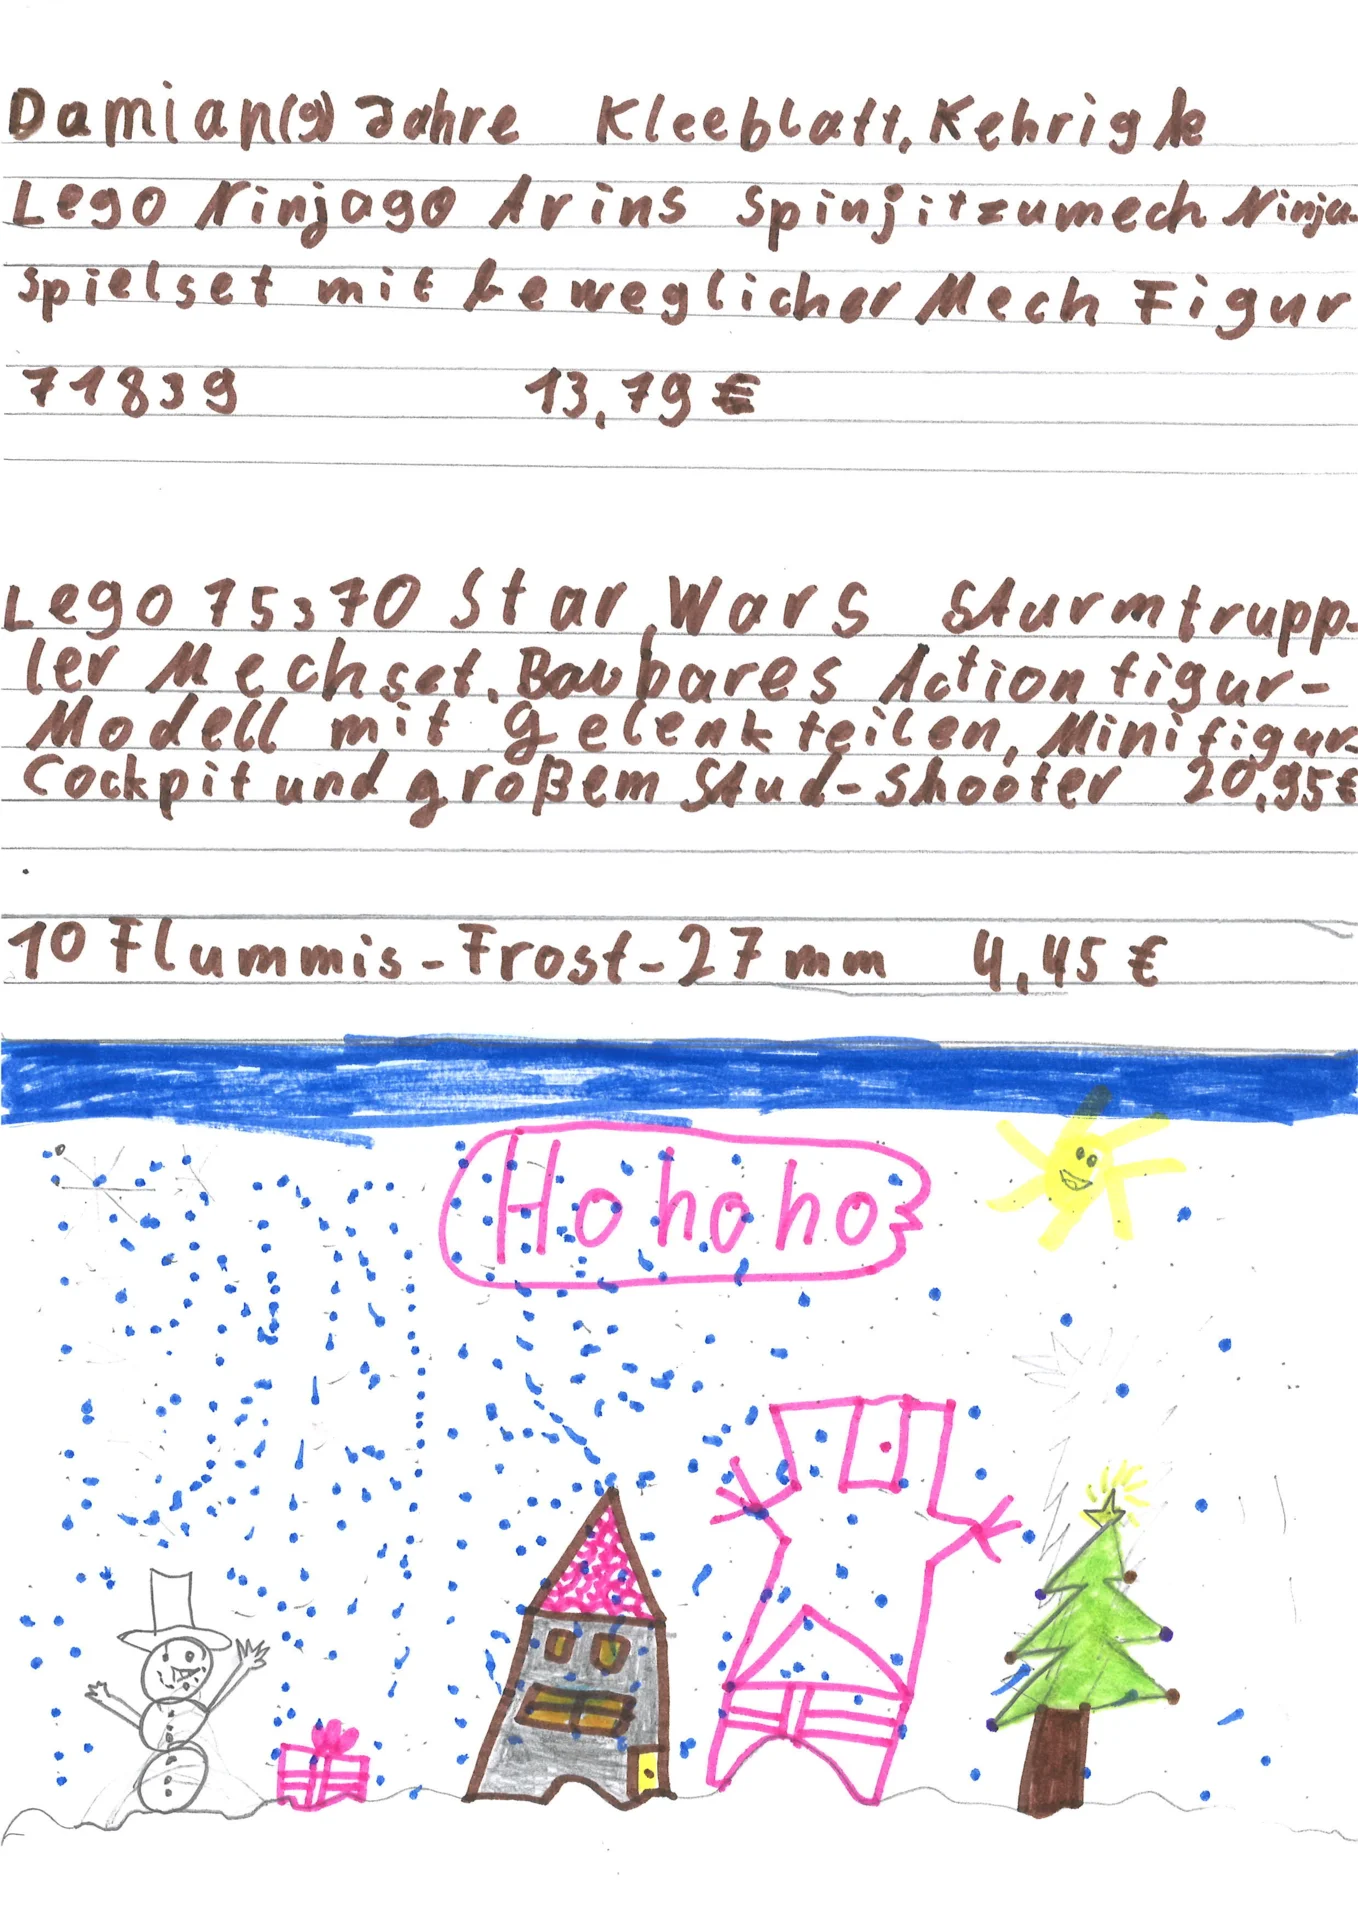 Damian(9) Jahre Kleeblatt, Kehrigk
Lego Ninjago Arins Spinjitzumech Ninja-
spielset mit beweglicher Mech Figur
71839 13,79 €
Lego 75370 Star Wars Sturmtrupp-
ler Mechset, Baubares Action figur-
Modell mit gelenkteilen, Minifigur-
Cockpit und großem Stud-shooter 20,95€
10 Flummis-Frost-27 mm 4,45 €
Ho ho ho